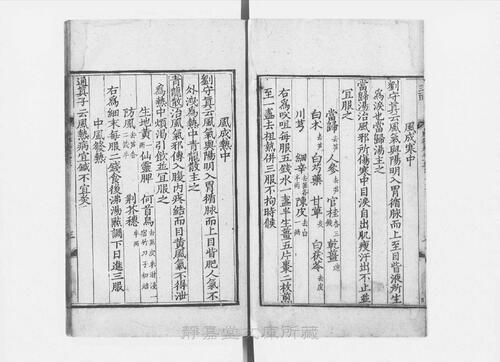 風成寒中
劉守真云風氣與陽明入胃循脉而上至目眥液所生
爲淚也當歸湯主之
當歸湯治風邪所傷寒中目淚自出肌瘦汗出不止並
宜服之
當歸 去芦 人參 去芦 官桂 去皮 乾薑 炮
白朮 去芦 白芍藥 甘草 白茯苓 去皮
川芎 細辛 陳皮 去白
右爲㕮咀每服五錢水一盞半生薑五片棗二枚煎
至一盞去柤熱併三服不拘時候
風成熱中
劉守真云風氣與陽明入胃循脉而上目眥肥人氣不
外泄爲熱中青龍散主之
青龍散治風氣邪傳入腹內疼結而目黄風氣不得泄
爲熱中煩渴引飲並宜服之
生地黄 仙靈脾 何首烏
防風 荊芥穗
右爲細末每服二錢食後沸湯點調下日進三服
中風發熱
通真子云風熱病宜鍼不宜灸
靜嘉堂文庫所藏